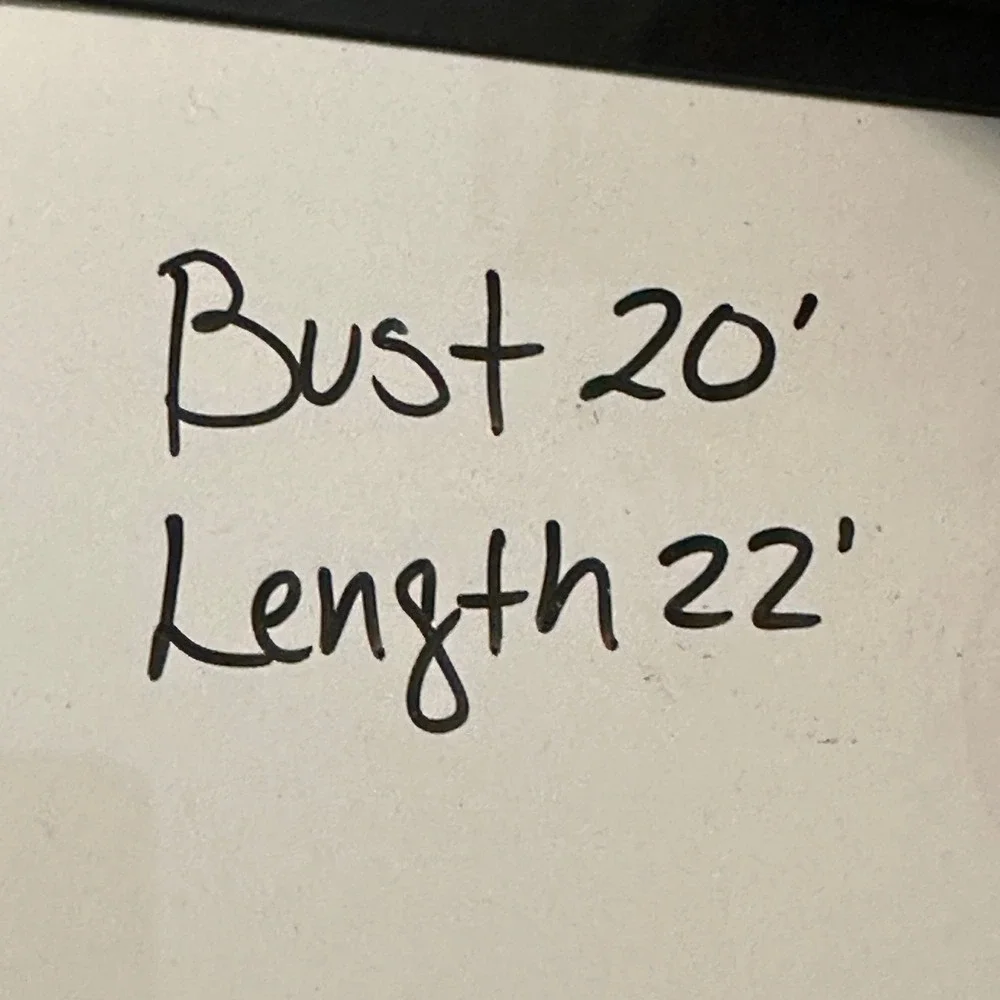 Bust 20'
Length 22'